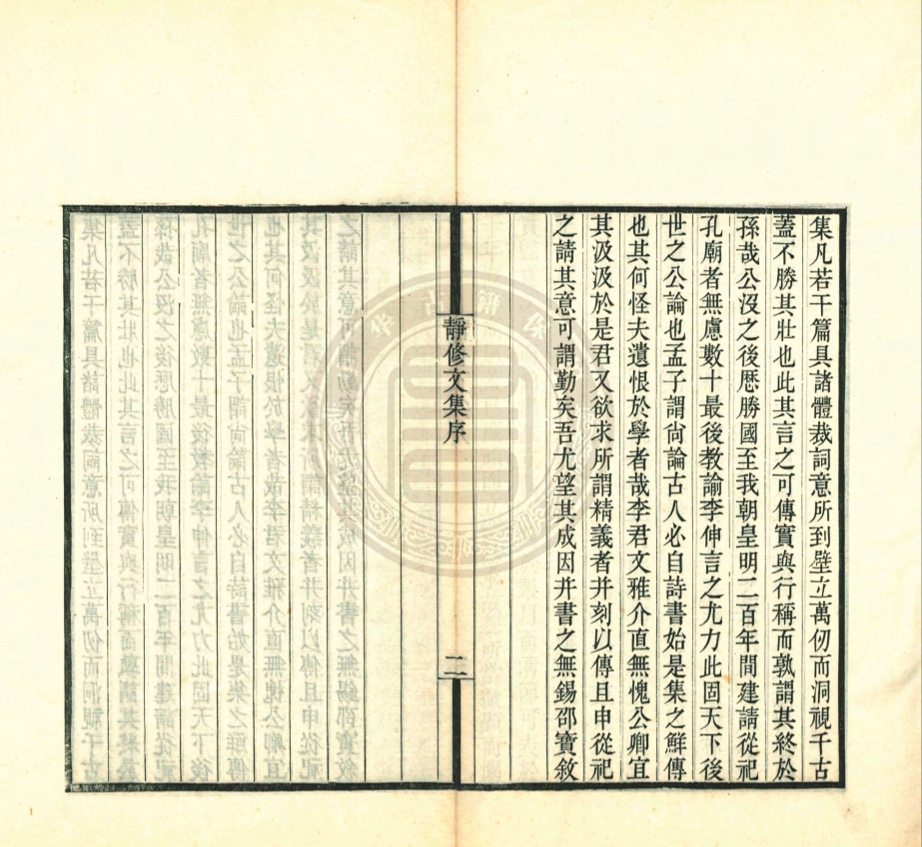 集凡若干篇具諸體裁詞意所到壁立萬仞而洞視千古
蓋不勝其壯也此其言之可傳實與行稱而孰謂其終於
孫哉公沒之後歷勝國至我朝皇明二百年間建請從祀
孔廟者無慮數十最後教諭李伸言之尤力此固天下後
世之公論也孟子謂尙論古人必自詩書始是集之鮮傳
也其何怪夫遺恨於學者哉李君文雅介直無愧公卿宜
其汲汲於是君又欲求所謂精義者并刻以傳且申從祀
之請其意可謂勤矣吾尤望其成因并書之無錫邵寶敘
靜修文集序
二